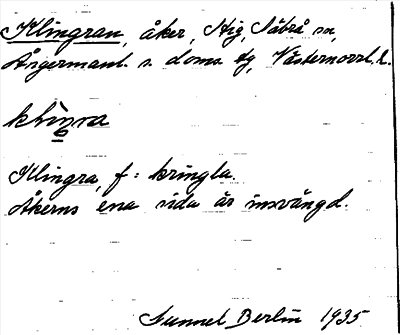 Klingran, åker, Stig, Säbrå sn,
Ångermanl. s. doms tg, Västernorrl. l.
Klingra, f = kringla.
Åkerns ena sida är insvängd.
Gunnel Berlin 1935